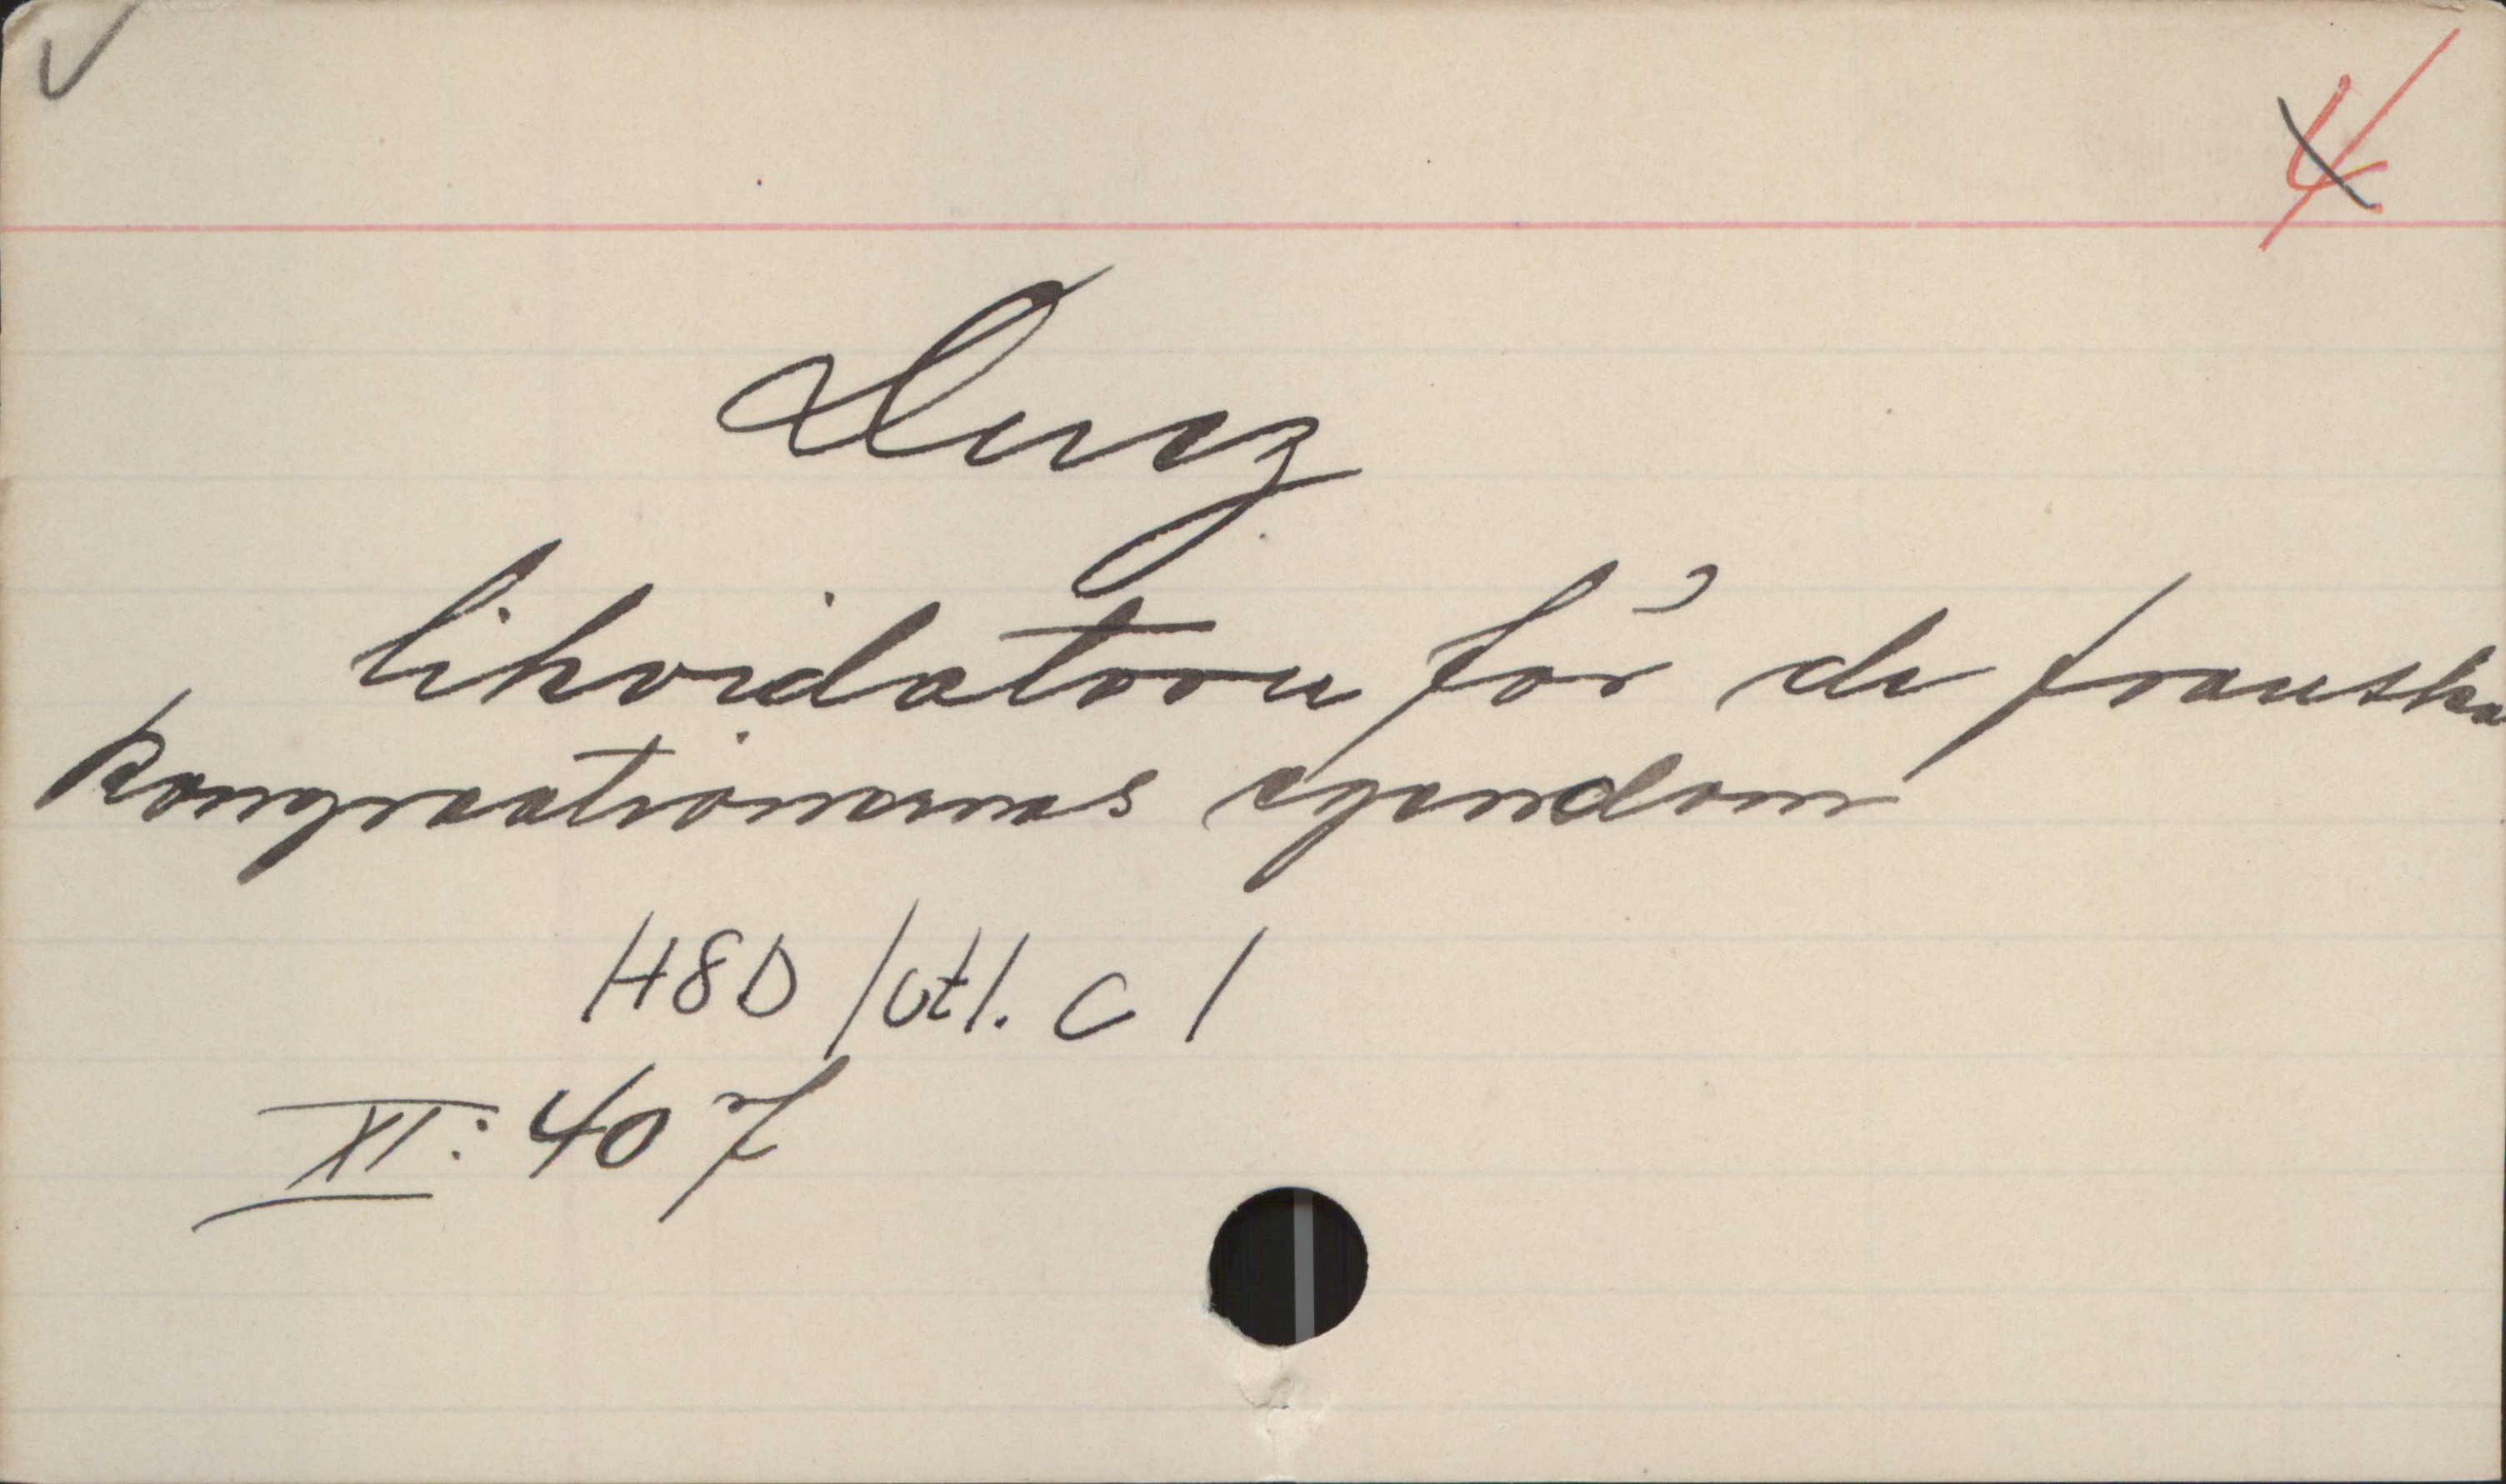 4
Duez
likvidatorn för de franska
kongreationernas egendom
H8D / utl. C 1
XI: 407